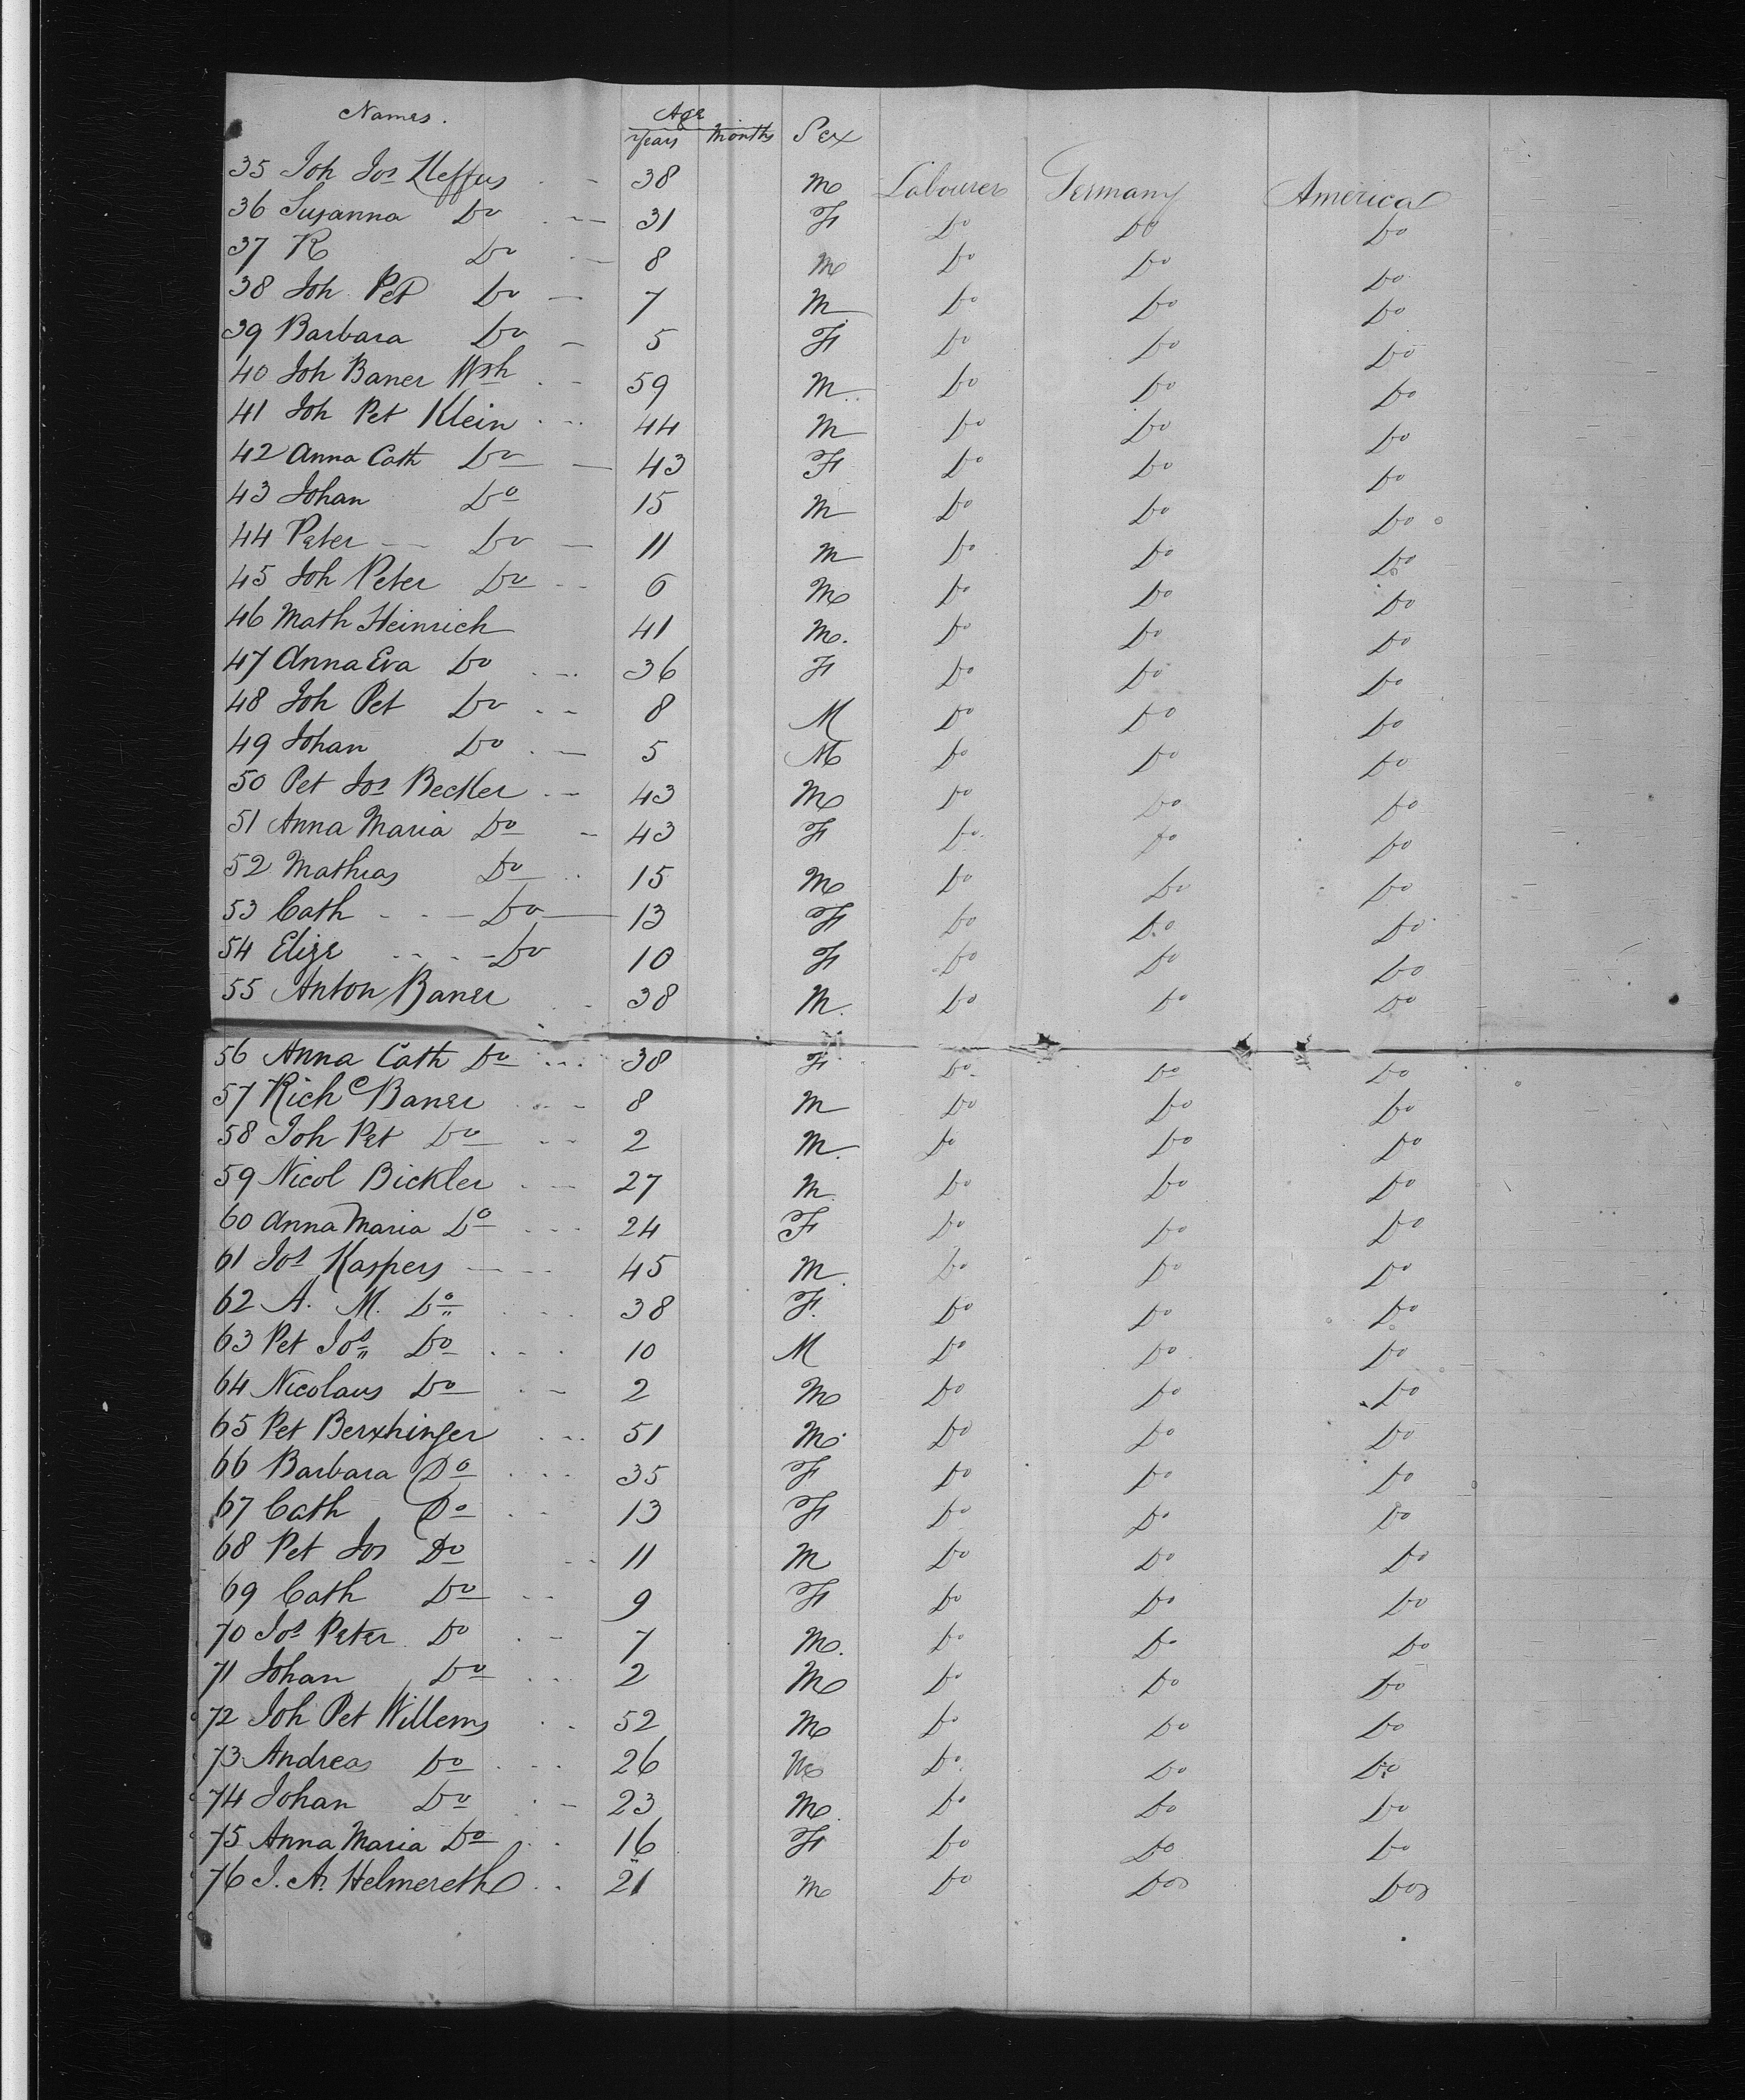 Names. Age
years months Sex
35 Joh Jos Heffus 38 M Labourer Germany America
36 Susanna Do 31 F Do Do Do
37 R Do 8 M Do Do Do
38 Joh Pet Do 7 M Do Do Do
39 Barbara Do 5 F Do Do Do
40 Joh Baner 59 M Do Do Do
41 Joh Pet Klein 44 M Do Do Do
42 Anna Cath Do 43 F Do Do Do
43 Johan Do 15 M Do Do Do
44 Peter Do 11 M Do Do Do
45 Joh Peter Do 6 M Do Do Do
46 Math Heinrich 41 M. Do Do Do
47 Anna Eva Do 36 F Do Do Do
48 Joh Pet Do 8 M Do Do Do
49 Johan Do 5 M Do Do Do
50 Pet Jos Becker 43 M Do Do Do
51 Anna Maria Do 43 F Do Do Do
52 Mathias Do 15 M Do Do Do
53 Cath Do 13 F Do Do Do
54 Elize Do 10 F Do Do Do
55 Anton Baner 38 M. Do Do Do
56 Anna Cath Do 38 F Do Do Do
57 Rich Baner 8 M Do Do Do
58 Joh Pet Do 2 M. Do Do Do
59 Nicol Bickler 27 M Do Do Do
60 Anna Maria Do 24 F Do Do Do
61 Jos Kaspers 45 M. Do Do Do
62 A. M. Do 38 F. Do Do Do
63 Pet Jos Do 10 M Do Do Do
64 Nicolaus Do 2 M Do Do Do
65 Pet Berxhinger 51 M Do Do Do
66 Barbara Do 35 F Do Do Do
67 Cath Do 13 F Do Do Do
68 Pet Jos Do 11 M Do Do Do
69 Cath Do 9 F Do Do Do
70 Jos Peter Do 7 M. Do Do Do
71 Johan Do 2 M Do Do Do
72 Joh Pet Willems 52 M Do Do Do
73 Andreas Do 26 M Do Do Do
74 Johan Do 23 M Do Do Do
75 Anna Maria Do 16 F Do Do Do
76 J. A. Helmereth 21 M Do Do Do